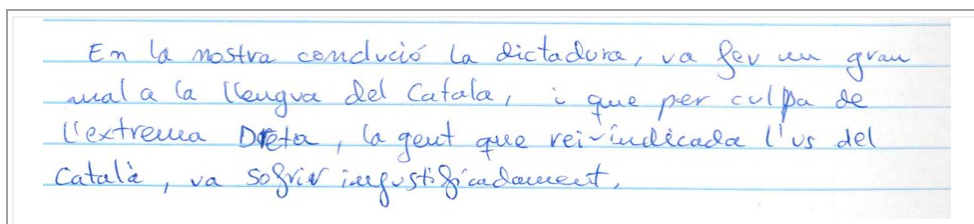 En la nostra conclució la dictadura, va fer un gran
mal a la llengua del Catala, i que per culpa de
l'extrema Dreta, la gent que reivindicada l'us del
Català, va sofrir injustificadament.